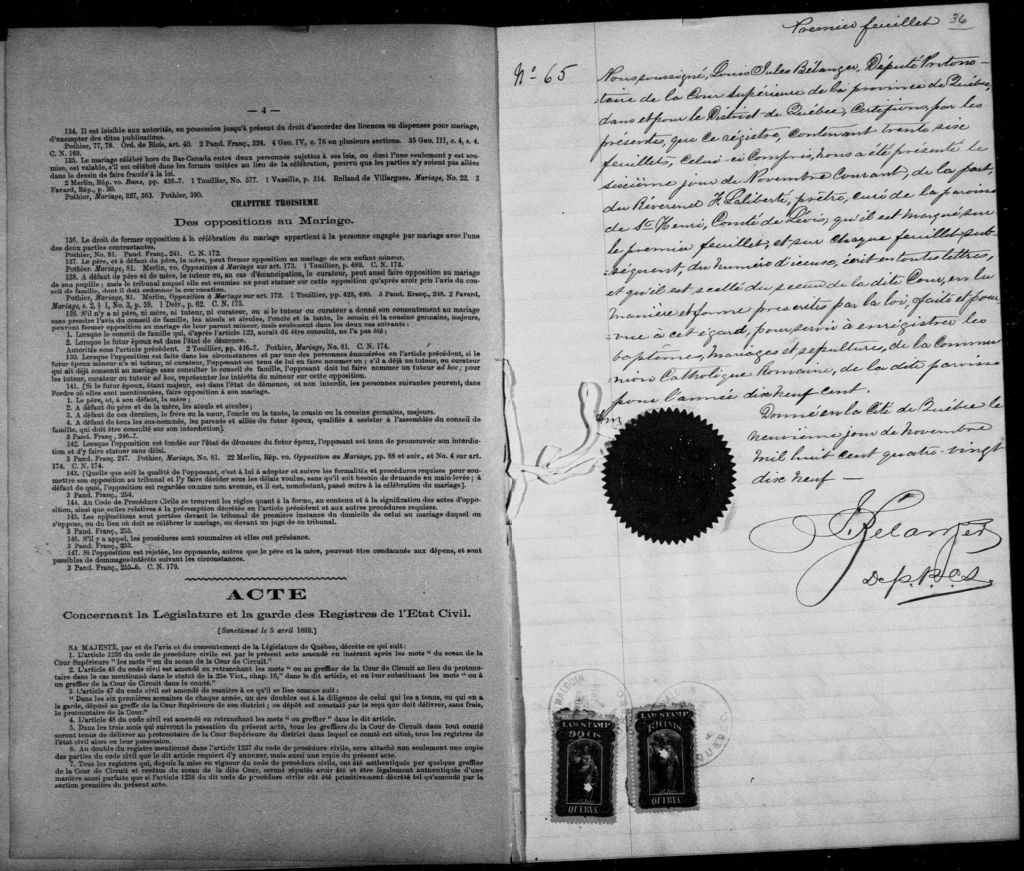 — 4 —
134. Il est loisible aux autorités, en possession jusqu'à présent du droit d'accorder des licences ou dispenses pour mariage,
d'exempter des dites publications.
Pothier, 77, 79. Ord. de Blois, art. 40. 2 Pand. Franç., 324. 4 Geo. IV, c. 76 en plusieurs sections. 35 Geo. III, c. 4, s. 4.
C. N. 169.
135. Le mariage célébré hors du Bas-Canada entre deux personnes sujettes à ses lois, ou dont l'une seulement y est sou-
mise, est valable, s'il est célébré dans les formes usitées au lieu de la célébration, pourvu que les parties n'y soient pas allées
dans le dessin de faire fraude à la loi.
2 Merlin, Rép. vo. Bans, pp. 436-7. 1 Touillier, No. 577. 1 Vazeille, p. 314. Rolland de Villargues. Mariage, No. 22. 3
Favard, Rép., p. 30.
Pothier, Mariage, 327, 363. Pothier, 390.
CHAPITRE TROISIEME
Des oppositions au Mariage.
136. Le droit de former opposition à la célébration du mariage appartient à la personne engagée par mariage avec l'une
des deux parties contractantes.
Pothier, No. 81. Pand. Franç., 241. C. N. 172.
137. Le père, et à défaut du père, la mère, peut former opposition au mariage de son enfant mineur.
Pothier. Mariage, 81. Merlin, vo. Opposition à Mariage sur art. 173. 1 Touillier, p. 489. C. N. 173.
138. A défaut de père et de mère, le tuteur ou, au cas d'émancipation, le curateur, peut aussi faire opposition au mariage
de son pupille; mais le tribunal auquel elle est soumise ne peut statuer sur cette opposition qu'après avoir pris l'avis du con-
seil de famille, dont il doit ordonner la convocation.
Pothier, Mariage, 81. Merlin, Opposition à Mariage sur art. 172. 1 Touillier, pp. 425, 490. 3 Pand. Franç., 248. 2 Favard,
Mariage, s. 2, § 1, No. 3, p. 59. 1 Delv., p. 62. C. N. 175.
139. S'il n'y a ni père, ni mère, ni tuteur, ni curateur, ou si le tuteur ou curateur a donné son consentement au mariage
sans prendre l'avis du conseil de famille, les aïeuls et aïeules, l'oncle et la tante, le cousin et la cousine germains, majeurs,
peuvent former opposition au mariage de leur parent mineur, mais seulement dans les deux cas suivants :
1. Lorsque le conseil de famille qui, d'après l'article 122, aurait dû être consulté, ne l'a pas été;
2. Lorsque le futur époux est dans l'état de démence.
Autorités sous l'article précédent. 2 Touillier, pp. 446-7. Pothier, Mariage, No. 81. C. N. 174.
130. Lorsque l'opposition est faite dans les circonstances et par une des personnes énumérées en l'article précédent, si le
futur époux mineur n'a ni tuteur, ni curateur, l'opposant est tenu de lui en faire nommer un ; s'il a déjà un tuteur, ou curateur
qui ait déjà consenti au mariage sans consulter le conseil de famille, l'opposant doit lui faire nommer un tuteur ad hoc; pour
les tuteur, curateur ou tuteur ad hoc, représenter les intérêts du mineur sur cette opposition.
141. [Si le futur époux, étant majeur, est dans l'état de démence, et non interdit, les personnes suivantes peuvent, dans
l'ordre où elles sont mentionnées, faire opposition à son mariage.
1. Le père, et, à son défaut, la mère ;
2. A défaut du père et de la mère, les aïeuls et aïeules ;
3. A défaut de ces derniers, le frère ou la sœur, l'oncle ou la tante, le cousin ou la cousine germains, majeurs.
4. A défaut de tous les sus-nommés, les parents et alliés du futur époux, qualifiés à assister à l'assemblée du conseil de
famille, qui doit être consulté sur son interdiction].
3 Pand. Franç., 246-7.
142. Lorsque l'opposition est fondée sur l'état de démence du futur époux, l'opposant est tenu de promouvoir son interdic-
tion et d'y faire statuer sans délai.
3 Pand. Franç. 247. Pothier, Mariage, No. 81. 22 Merlin, Rép. vo. Opposition au Mariage, pp. 88 et suiv., et No. 4 sur art.
174. C. N. 174.
143. [Quelle que soit la qualité de l'opposant, c'est à lui à adopter et suivre les formalités et procédures requises pour sou-
mettre son opposition au tribunal et l'y faire décider sous les délais voulus, sans qu'il soit besoin de demande en main-levée; à
défaut de quoi, l'opposition est regardée comme non avenue, et il est, nonobstant, passé outre à la célébration du mariage].
3 Pand. Franç., 254.
144. Au Code de Procédure Civile se trouvent les règles quant à la forme, au contenu et à la signification des actes d'oppo-
sition, ainsi que celles relatives à la péremption décrétée en l'article précédent et aux autres procédures requises.
145. Les oppositions sont portées devant le tribunal de première instance du domicile de celui au mariage duquel on
s'oppose, ou du lieu où doit se célébrer le mariage, ou devant un juge de ce tribunal.
3 Pand. Franç., 253.
146. S'il y a appel, les procédures sont sommaires et elles ont préséance.
3 Pand. Franç., 253.
147. Si l'opposition est rejetée, les opposants, autres que le père et la mère, peuvent être condamnés aux dépens, et sont
passibles de dommages-intérêts suivant les circonstances.
3 Pand. Franç., 255-6. C. N. 179.
ACTE
Concernant la Législature et la garde des Registres de l'Etat Civil.
[Sanctionné le 5 avril 1869.]
SA MAJESTÉ, par et de l'avis et du consentement de la Législature de Québec, décrète ce qui suit :
1. L'article 1236 du code de procédure civile est par le présent acte amendé en insérant après les mots " du sceau de la
Cour Supérieure " les mots " ou du sceau de la Cour de Circuit."
2. L'article 45 du code civil est amendé en retranchant les mots " ou au greffier de la Cour de Circuit au lieu du protono-
taire dans le cas mentionné dans le statut de la 25e Vict., chap. 16," dans le dit article, et en leur substituant les mots " ou à
un greffier de la Cour de Circuit dans le comté."
3 L'article 47 du code civil est amendé de manière à ce qu'il se lise comme suit :
" Dans les six premières semaines de chaque année, un des doubles est à la diligence de celui qui les a tenus, ou qui en a
la garde, déposé au greffe de la Cour Supérieure de son district ; ce dépôt est constaté par le reçu que doit délivrer, sans frais,
le protonotaire de la Cour."
4. L'article 48 du code civil est amendé en retranchant les mots " ou greffier " dans le dit article.
5. Dans les trois mois qui suivront la passation du présent acte, tous les greffiers de la Cour de Circuit dans tout comté
seront tenus de délivrer au protonotaire de la Cour Supérieure du district dans lequel ce comté est situé, tous les registres de
l'état civil alors en leur possession.
6. Au double du registre mentionné dans l'article 1237 du code de procédure civile, sera attaché non seulement une copie
des parties du code civil que le dit article requiert d'y annexer, mais aussi une copie du présent acte.
7. Tous les registres qui, depuis la mise en vigueur du code de procédure civile, ont été authentiqués par quelque greffier
de la Cour de Circuit et revêtus du sceau de la dite Cour, seront réputés avoir été et être légalement authentiqués d'une
manière aussi parfaite que si l'article 1236 du dit code de procédure civile eût été primitivement décrété tel qu'amendé par la
section première du présent acte.
Premier feuillet 36
No 65
Nous soussigné, Louis Jules Bélanger, Député Protono-
taire de la Cour Supérieure de la province de Québec,
dans et pour le District de Québec, Certifions, par les
présentes, que ce régistre, contenant trente six
feuillets, Celui-ci Compris, nous a été présenté le
sixième jour de Novembre Courant, de la part
du Révérend F. Laliberté, prêtre, curé de la paroisse
de St. Henri, Comté de Lévis, qu'il est marqué sur
le premier feuillet, et sur chaque feuillet sub-
séquent, du numéro d'iceux, écrit en toutes lettres,
et qu'il est scellé du sceau de la dite Cour, en la
manière et forme prescrites par la loi, faite et pour-
vue à cet égard, pour servir à enrégistrer les
baptêmes, mariages et sépulture, de la Commu-
nion Catholique Romaine, de la dite paroisse
pour l'année dix neuf cent
Donné en la Cité de Québec le
neuvième jour de Novembre
mil huit cent quatre-vingt
dix neuf —
LJBelanger
Dep. P. C. S.
LAW STAMP
90 CTS
QUEBEC
LAW STAMP
QUEBEC